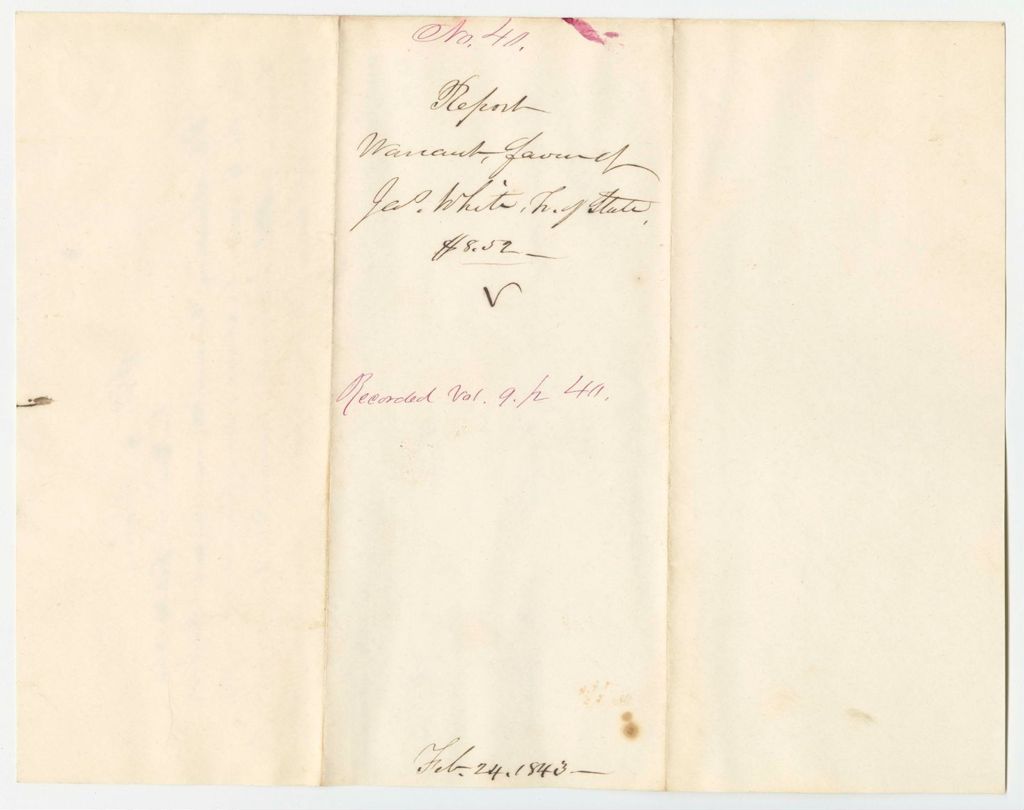 No. 40.
Report
Warrant, favour of
Jas. White, Tr. of State,
$8.52
Recorded Vol. 9. p 40.
Feb. 24. 1843